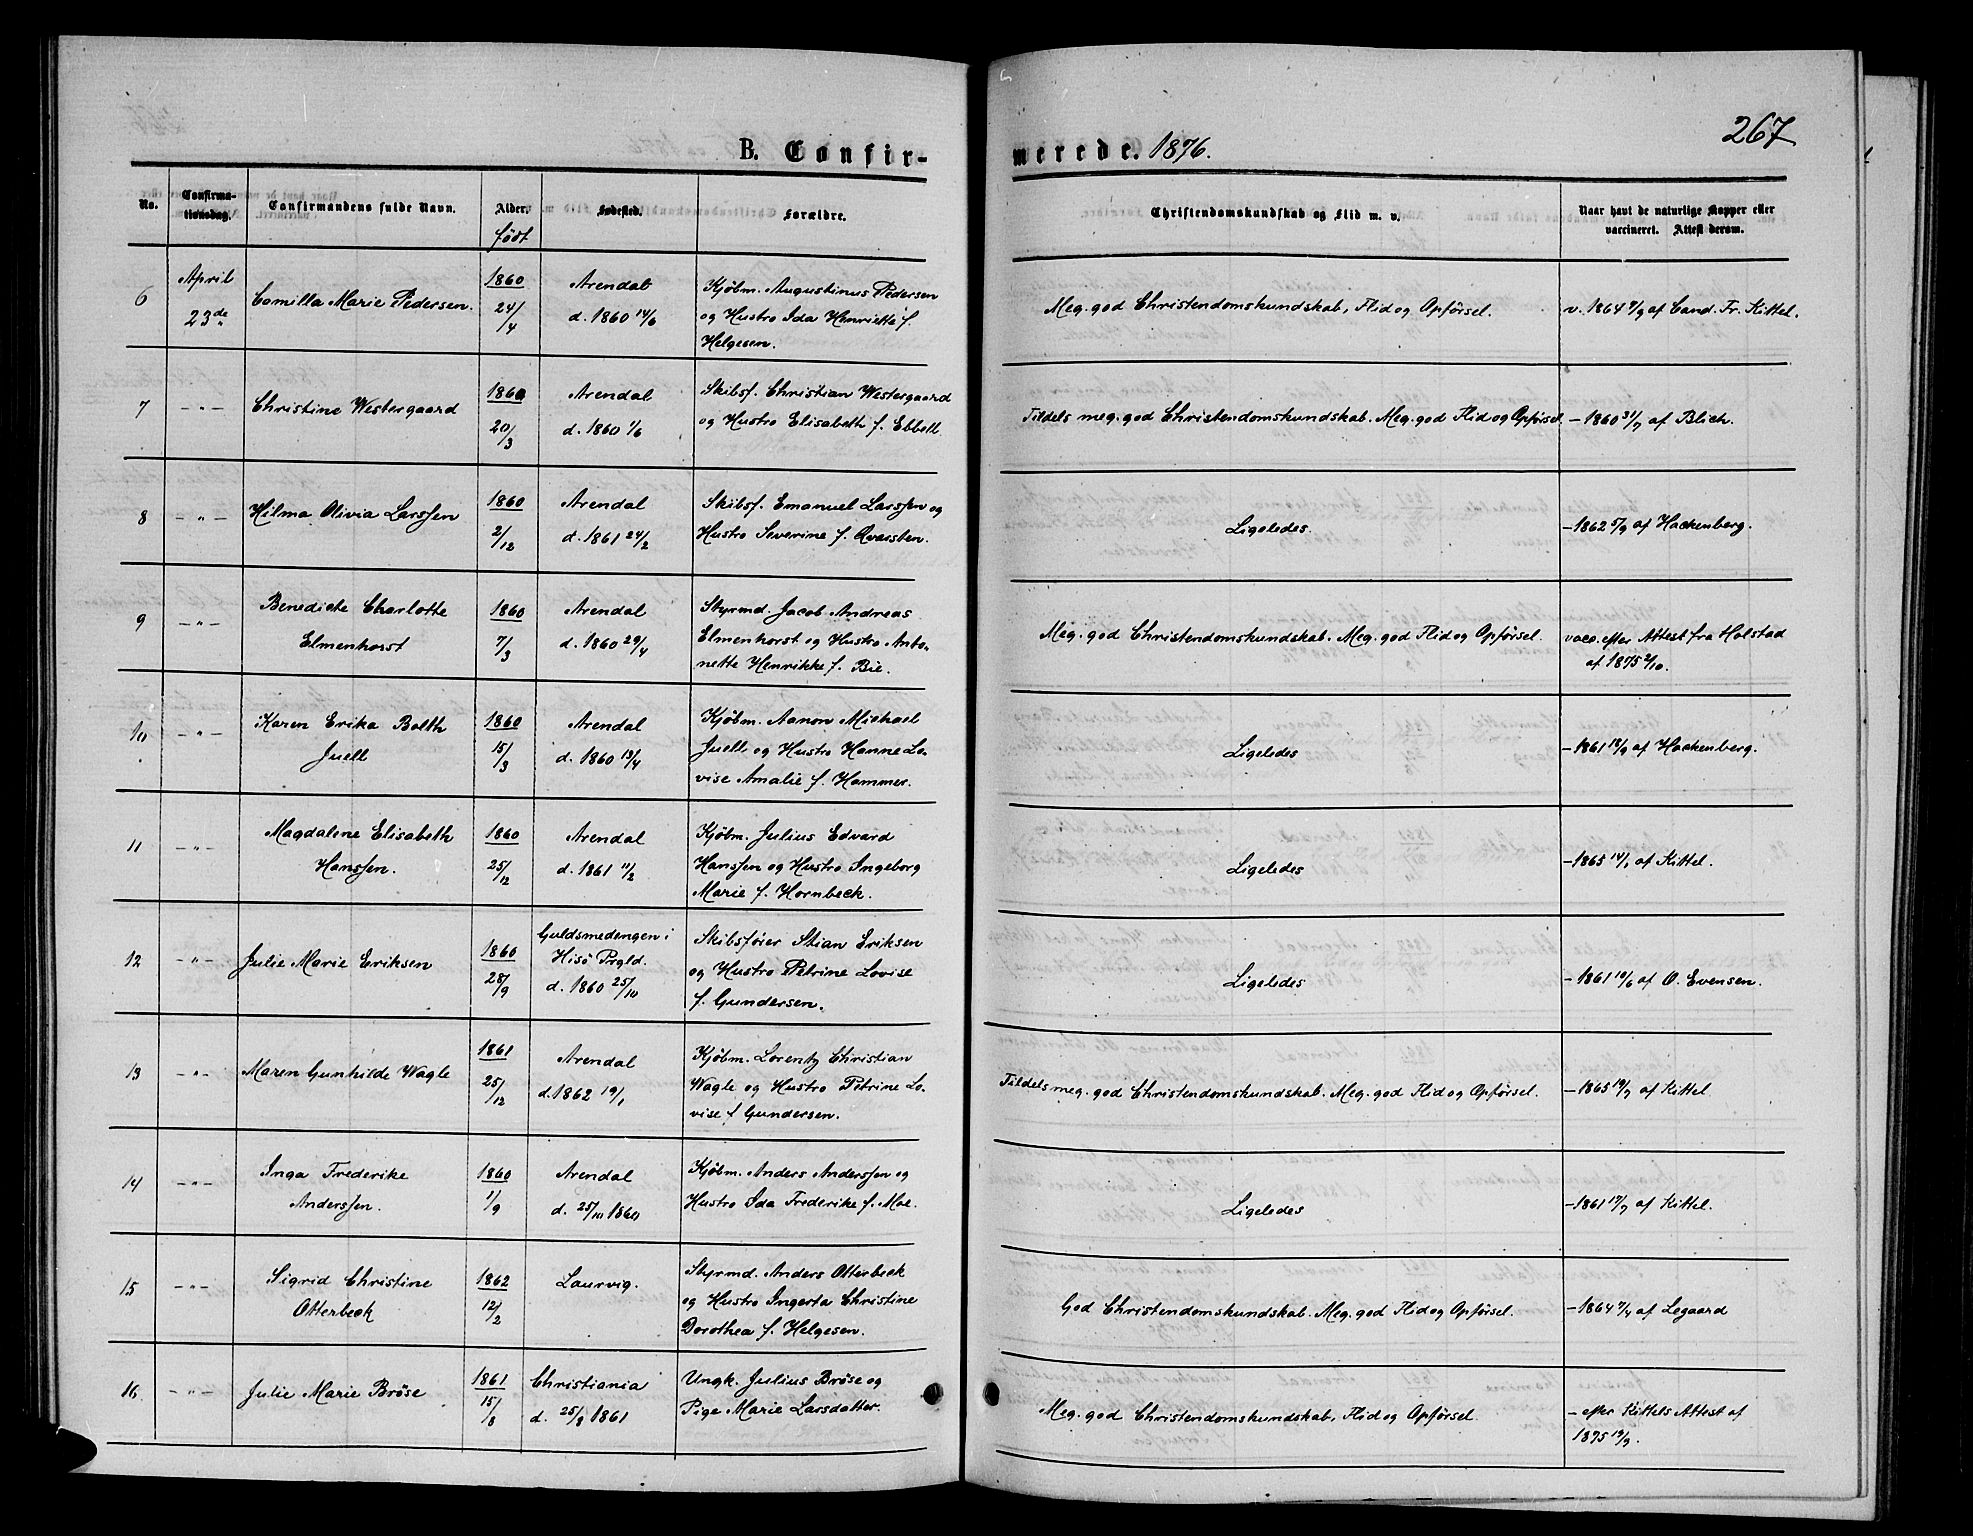 267
B. Confirmerede. 1876.
No.
Confirma-
tionsdag.
Confirmandens fulde Navn.
Alder.
født
Fødested.
Forældre.
Christendomskundskab og Flid m. v.
Naar havt de naturlige Kopper eller
vaccineret. Attest derom.
6
April
23de
Camilla Marie Pedersen.
1860
24/4
Arendal
d. 1860 14/6
Kjøbm. Augustinus Pedersen
og Hustro Ida Henriette f.
Helgesen.
Meg. god Christendomskundskab, Flid og Opførsel.
v. 1864 9/9 af Cand. Fr. Kittel.
7
-"-
Christine Westergaard
1860
20/3
Arendal
d. 1860 1/6
Skibsf. Christian Westergaard
og Hustro Elisabeth f. Ebbell
Tildels meg. god Christendomskundskab. Meg. god Flid og Opførsel.
- 1860 31/7 af Blich.
8
-"-
Hilma Olivia Larssen
1860
2/12
Arendal
d. 1861 24/2
Skibsf. Emanuel Larssen og
Hustro Severine f. Qvarsten.
Ligeledes.
- 1862 5/9 af Hackenberg.
9
-"-
Benedicte Charlotte
Elmenhorst
1860
7/3
Arendal
d. 1860 29/4
Styrmd. Jacob Andreas
Elmenhorst og Hustro Anto-
nette Henrikke f. Bie.
Meg. god Christendomskundskab. Meg. god Flid og Opførsel.
vacc. efter Attest fra Holstad
af 1875 2/10.
10
-"-
Karen Erika Bolth
Juell
1860
15/3
Arendal
d. 1860 13/4
Kjøbm. Aanon Michael
Juell, og Hustro Hanne Lo-
vise Amalie f. Hammer.
Ligeledes
- 1861 18/9 af Hackenberg.
11
-"-
Magdalene Elisabeth
Hanssen.
1860
25/12
Arendal
d. 1861 11/2
Kjøbm. Julius Edvard
Hanssen og Hustro Ingeborg
Marie f. Hornbeck.
Ligeledes
- 1865 14/7 af Kittel.
12
-"-
Julie Marie Eriksen
1860
28/9
Guldsmedengen i
Hisö Prgld.
d. 1860 25/10
Skibsfører Stian Eriksen
og Hustro Petrine Lovise
f. Gundersen.
Ligeledes
- 1861 19/6 af O. Evensen.
13
-"-
Maren Gunhilde Wagle
1861
25/12
Arendal
d. 1862 19/1
Kjøbm. Lorentz Christian
Wagle og Hustro Petrine Lo-
vise f. Gundersen.
Tildels meg. god Christendomskundskab. Meg. god Flid og Opførsel.
- 1865 19/7 af Kittel
14
-"-
Inga Frederike
Anderssen.
1860
1/9
Arendal
d. 25/10 1860
Kjøbm. Anders Anderssen og
Hustro Ida Frederike f. Moe.
Ligeledes
- 1861 17/7 af Kittel.
15
-"-
Sigrid Christine
Otterbeck
1862
12/2
Laurvig.
Styrmd. Anders Otterbeck
og Hustro Ingerta Christine
Dorothea f. Helgesen.
God Christendomskundskab. Meg. god Flid og Opførsel.
- 1864 7/4 af Legaard
16
-"-
Julie Marie Bröse
1861
15/8
Christiania
d. 25/9 1861
Ungk. Julius Bröse og
Pige Marie Larsdatter.
Meg. god Christendomskundskab, Flid og Opførsel.
- efter Kittels Attest af
1875 19/9.